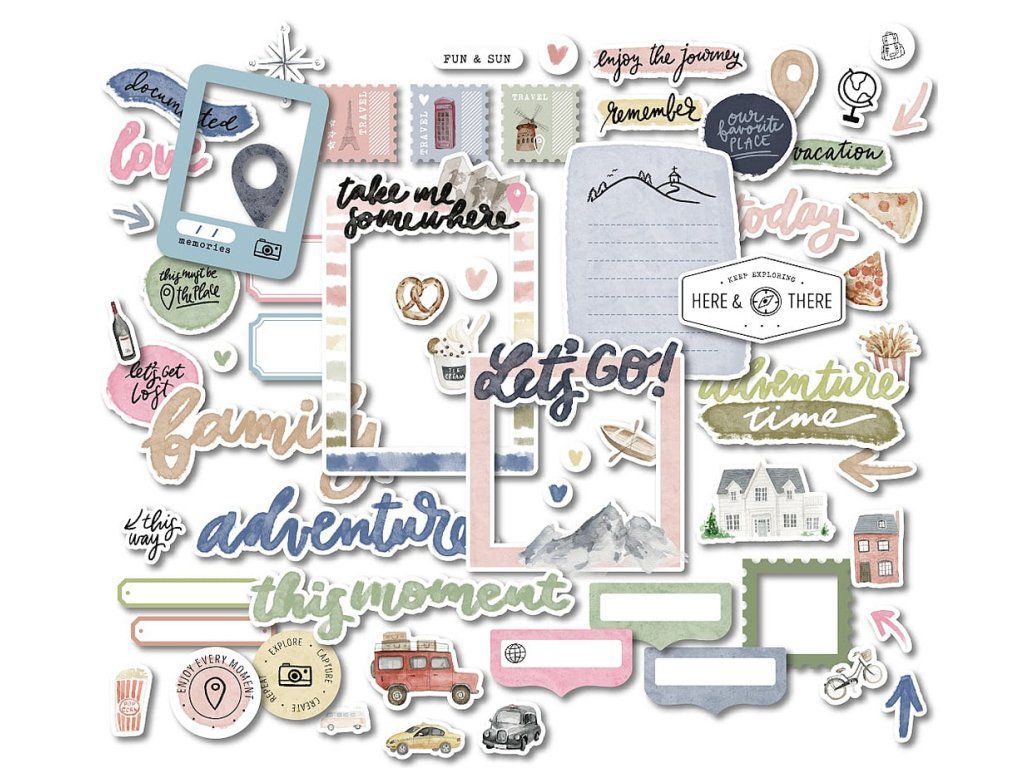 FUN & SUN
enjoy the journey
documented
TRAVEL
TRAVEL
TRAVEL
remember
our
favorite
PLACE
love
vacation
take me
somewhere
today
memories
this must be
the place
KEEP EXPLORING
HERE & THERE
let's get
lost
ICE
CREAM
Let's GO!
adventure
time
family
this
way
adventure
this moment
ENJOY EVERY MOMENT
EXPLORE · CAPTURE
CREATE · REPEAT
POP
CORN